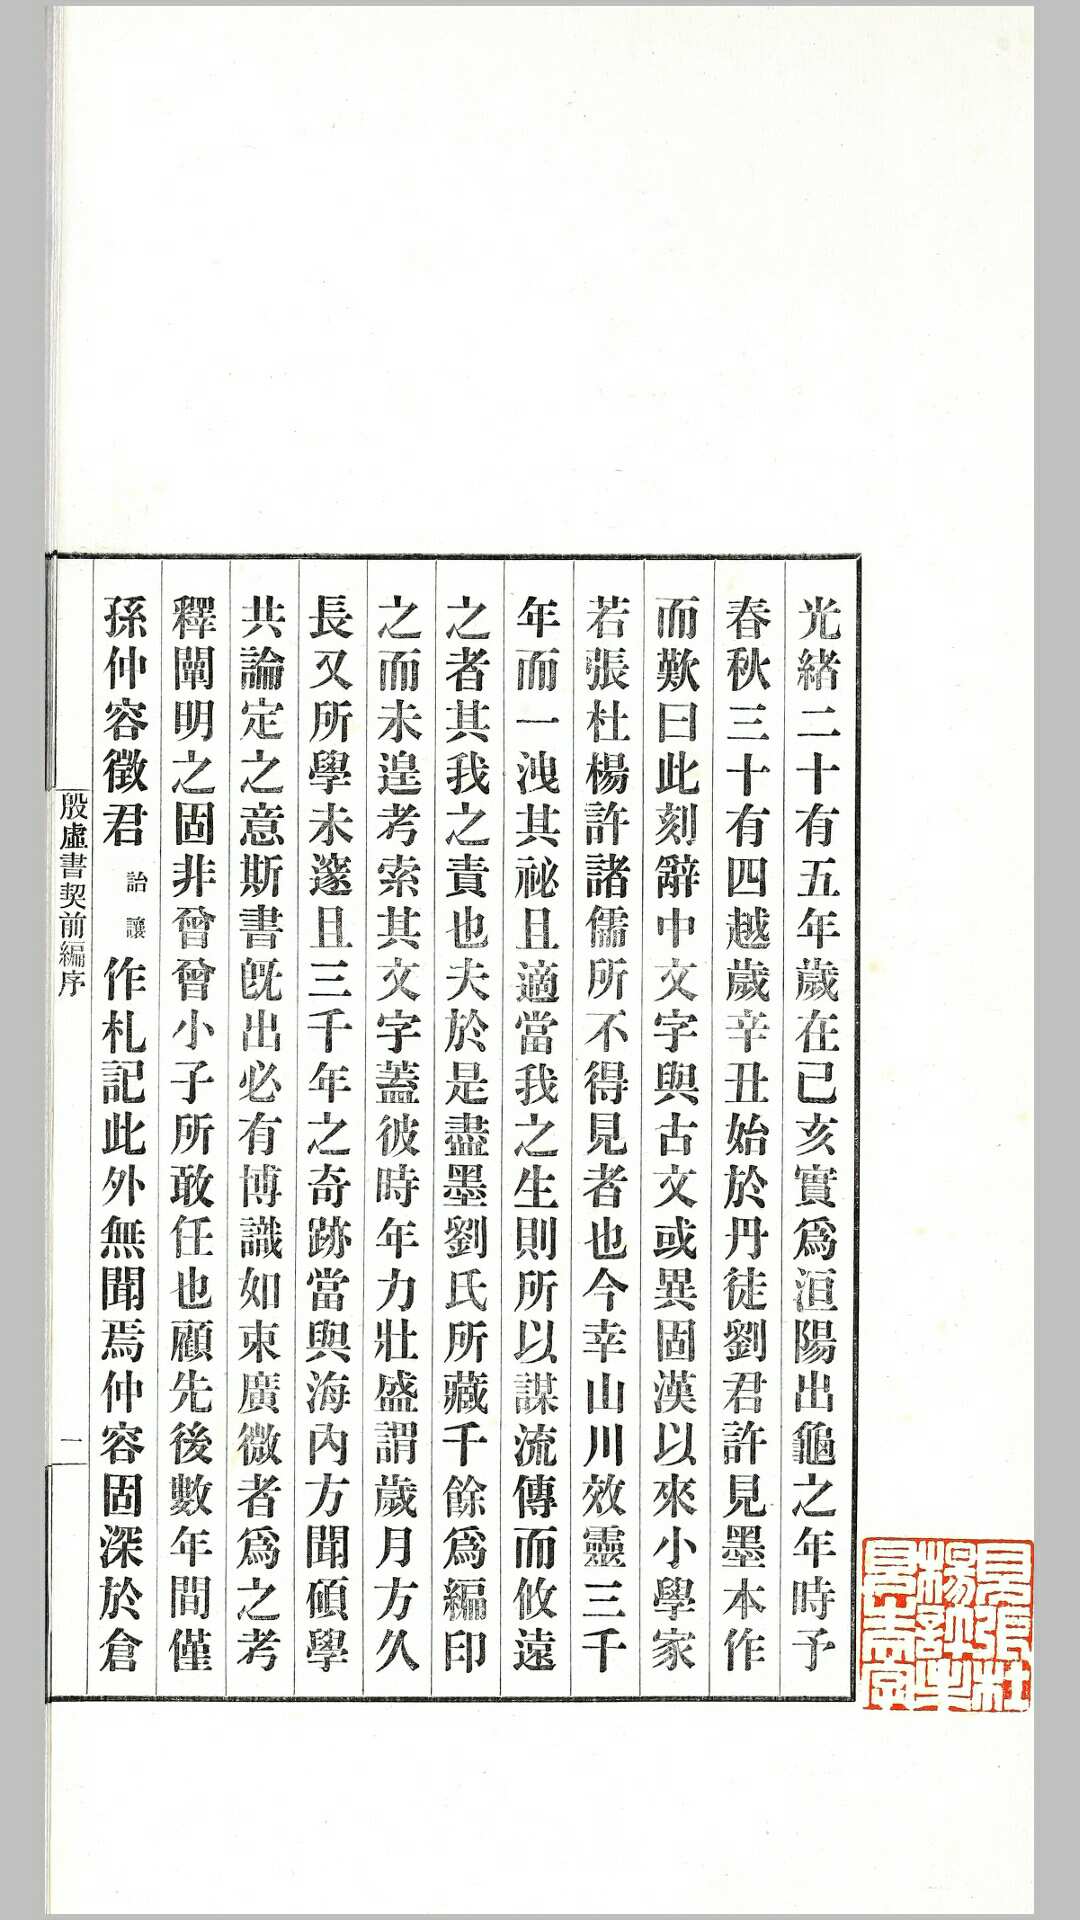 光緒二十有五年歲在己亥實爲洹陽出龜之年時予
春秋三十有四越歲辛丑始於丹徒劉君許見墨本作
而歎曰此刻辭中文字與古文或異固漢以來小學家
若張杜楊許諸儒所不得見者也今幸山川效靈三千
年而一洩其祕且適當我之生則所以謀流傳而攸遠
之者其我之責也夫於是盡墨劉氏所藏千餘爲編印
之而未遑考索其文字蓋彼時年力壯盛謂歲月方久
長又所學未邃且三千年之奇跡當與海內方聞碩學
共論定之意斯書既出必有博識如束廣微者爲之考
釋闡明之固非曾曾小子所敢任也顧先後數年間僅
孫仲容徵君詒讓作札記此外無聞焉仲容固深於倉
殷虛書契前編序
一